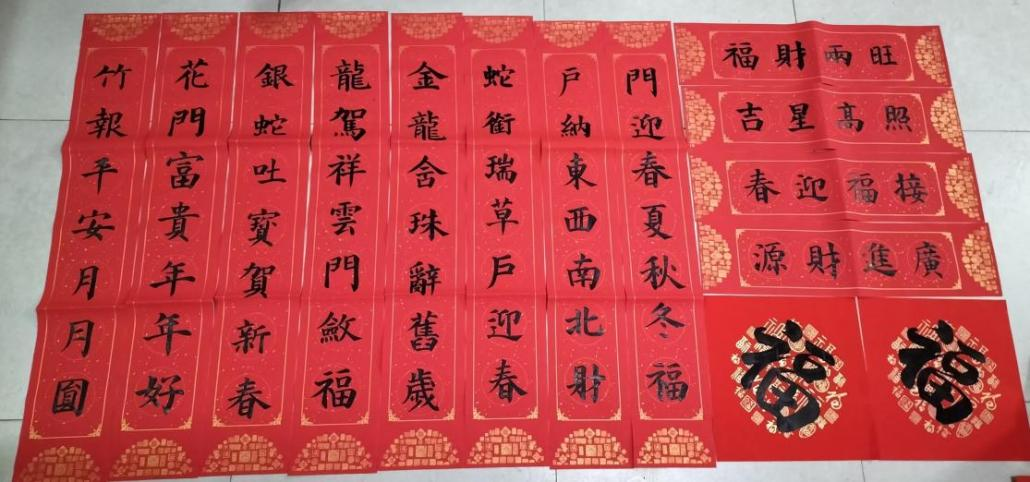 門迎春夏秋冬福
戶納東西南北財
蛇銜瑞草戶迎春
龍駕祥雲門斂福
金龍含珠辭舊歲
銀蛇吐寶賀新春
花門富貴年年好
竹報平安月月圓
福財兩旺
吉星高照
接福迎春
廣進財源
福
福